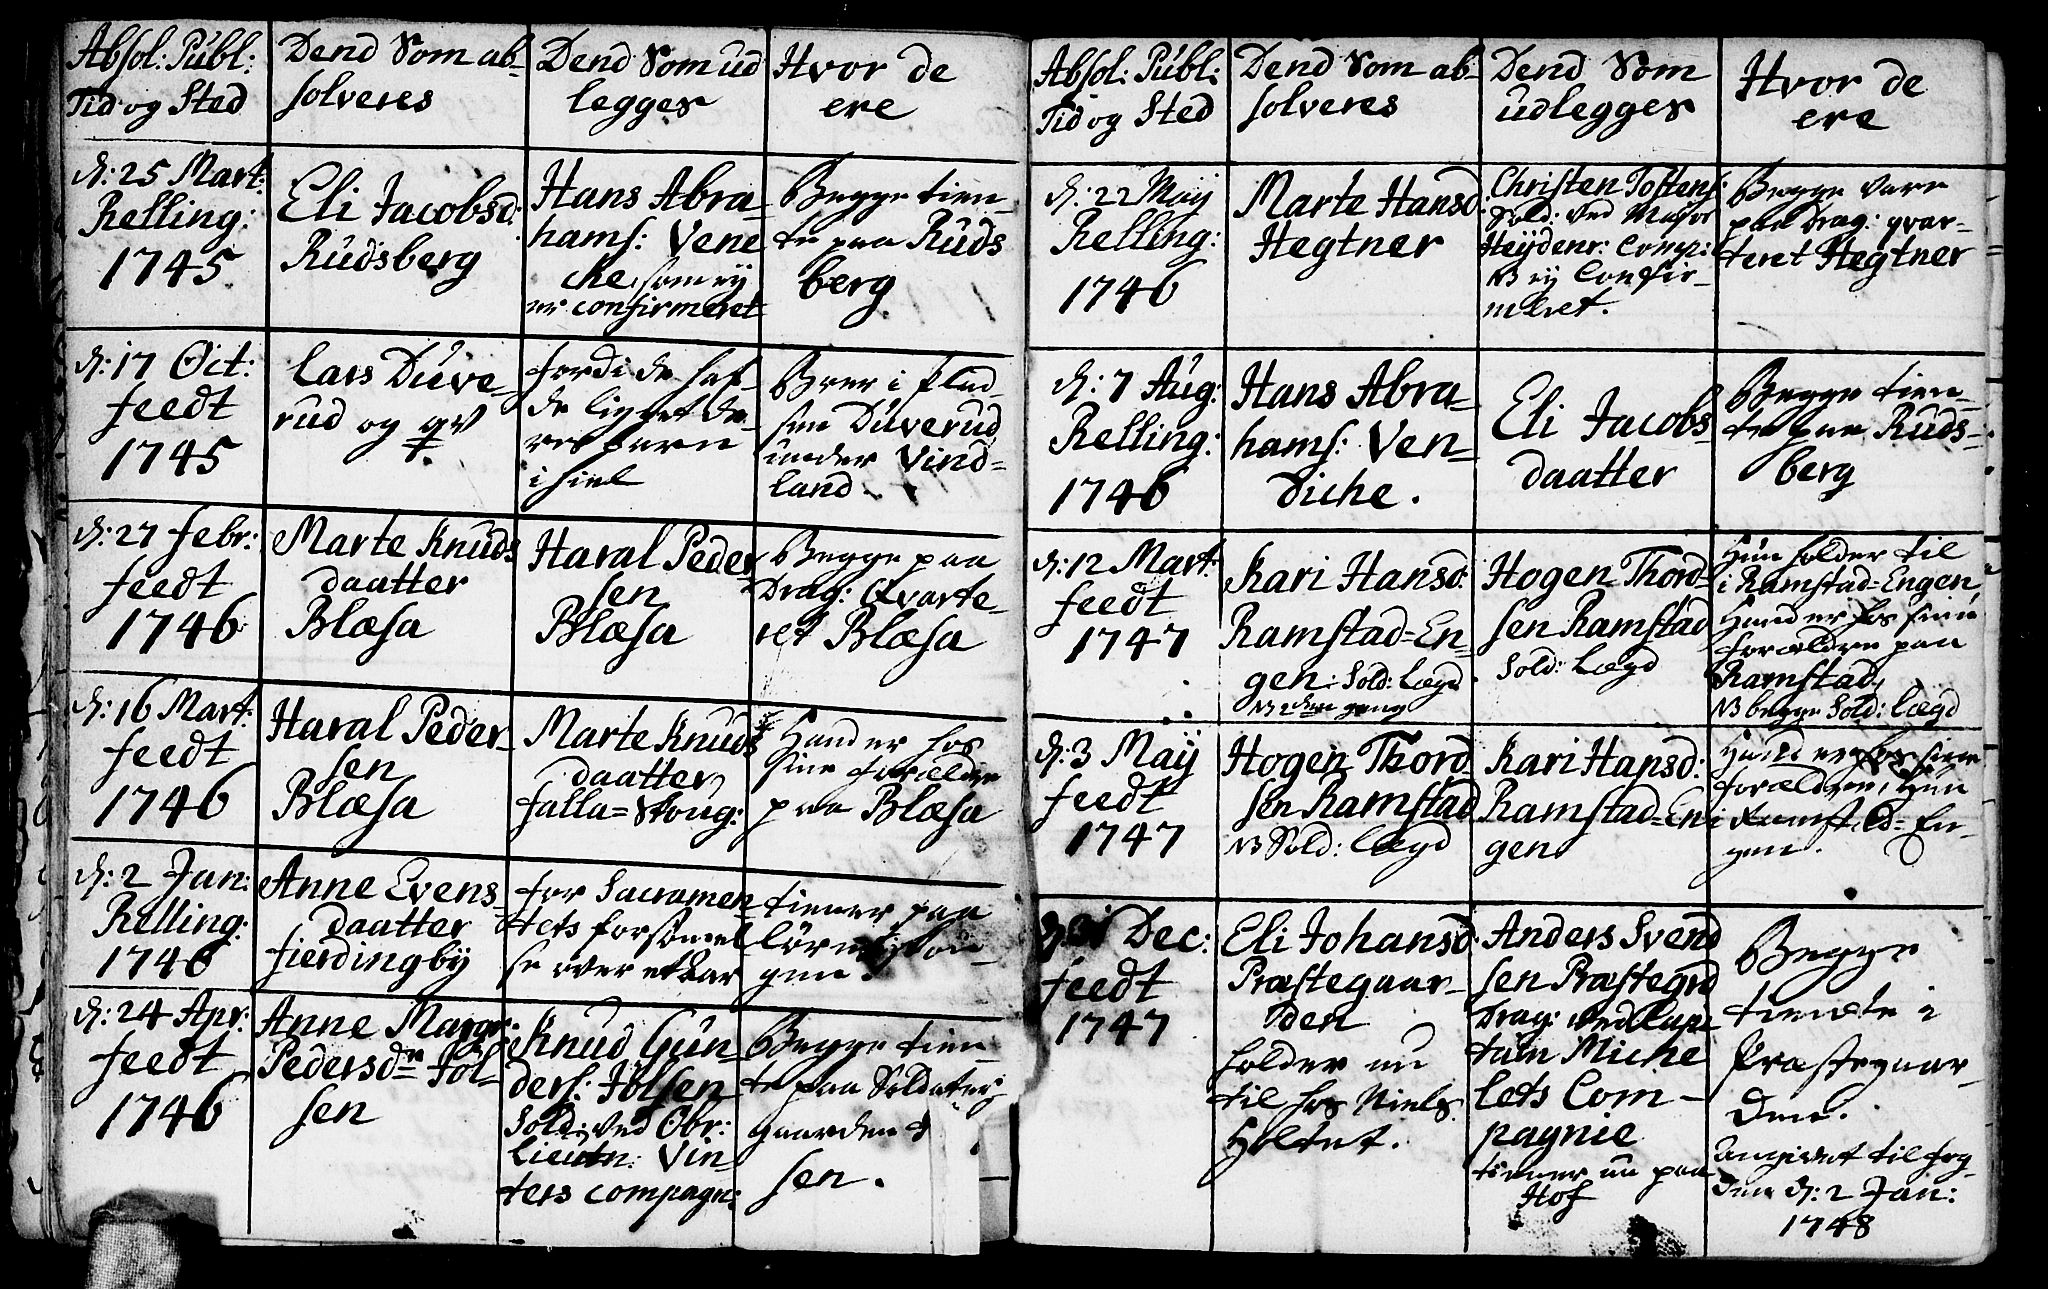 Absol: Publ:
Tid og Sted
Dend Som ab-
solveres
Dend Som ud
legges
Hvor de
ere
d: 25 Mart:
Relling:
1745
Eli Jacobsd:
Rudsberg
Hans Abra-
hams: Vene
che, som ey
er confirmeret
Begge tien-
te paa Ruds
berg
d: 17 Oct:
feedt
1745
Lars Duve-
rud og qv
fordi de haf-
de ligget de-
res barn
ihiel
Boer i Plad-
sen Duverud
under Vind-
land.
d: 27 Febr:
feedt
1746
Marte Knuds
daatter
Blæsa
Haral Peder
sen
Blæsa
Begge paa
Drag: Qvarte-
ret Blæsa
d: 16 Mart:
feedt
1746
Haral Peder-
sen
Blæsa
Marte Knuds
daatter
falla-Skoug:
Hand er hos
sine forældre
paa Blæsa
d: 2 Jan:
Relling:
1746
Anne Evens-
daatter
fierdingby
for Sacramen-
tets forsømel
se over et aar
tiener paa
gen.
d: 24 Apr:
feedt
1746
Anne Margr:
Pedersdr Jol-
sen
Knud Gun-
ders: Jolsen
Sold: ved Obr:
Lieutn: Vin-
ters compagn:
Begge tien-
te paa Soldater
gaarden
sen.
Absol: Publ:
Tid og Sted
Dend Som ab-
solveres
Dend Som
udlegges
Hvor de
ere
d: 22 Maij
Relling:
1746
Marte Hansd
Hegtner
Christen Tostens:
Sold: ved Major
Heydenr: Comp:
NB ey Confir-
meret.
Begge vare
paa Drag: qvar-
teret Hegtner
d: 7 Aug:
Relling:
1746
Hans Abra-
hams: Ven-
diche.
Eli Jacobs
daatter
Begge tien-
te paa Ruds-
berg
d: 12 Mart:
feedt
1747
Kari Hansd:
Ramstad-En-
gen. Sold: Lægd
NB 2den gang
Hogen Thord-
sen Ramstad
Sold: Lægd
Hun holder til
i Ramstad-Engen,
Hand er hos sine
forældre paa
Ramstad,
NB begge Sold: lægd
d: 3 Maij
feedt
1747
Hogen Thord
sen Ramstad
NB Sold: Lægd
Kari Hansd:
Ramstad-En
gen
Hand er hos sine
forældre, Hun
i Ramstad-En-
gen.
Dec:
feedt
1747
Eli Johansd:
Præstegaar-
den
holder nu
til hos Niels
Holtet.
Anders Svend
sen Præstegrd
Drag: ved Cap-
tain Miche
lets Com-
pagnie
tiener nu paa
Hof
Begge
tiente i
Præstegaar-
den.
Angivet til fog-
den d: 2 Jan:
1748